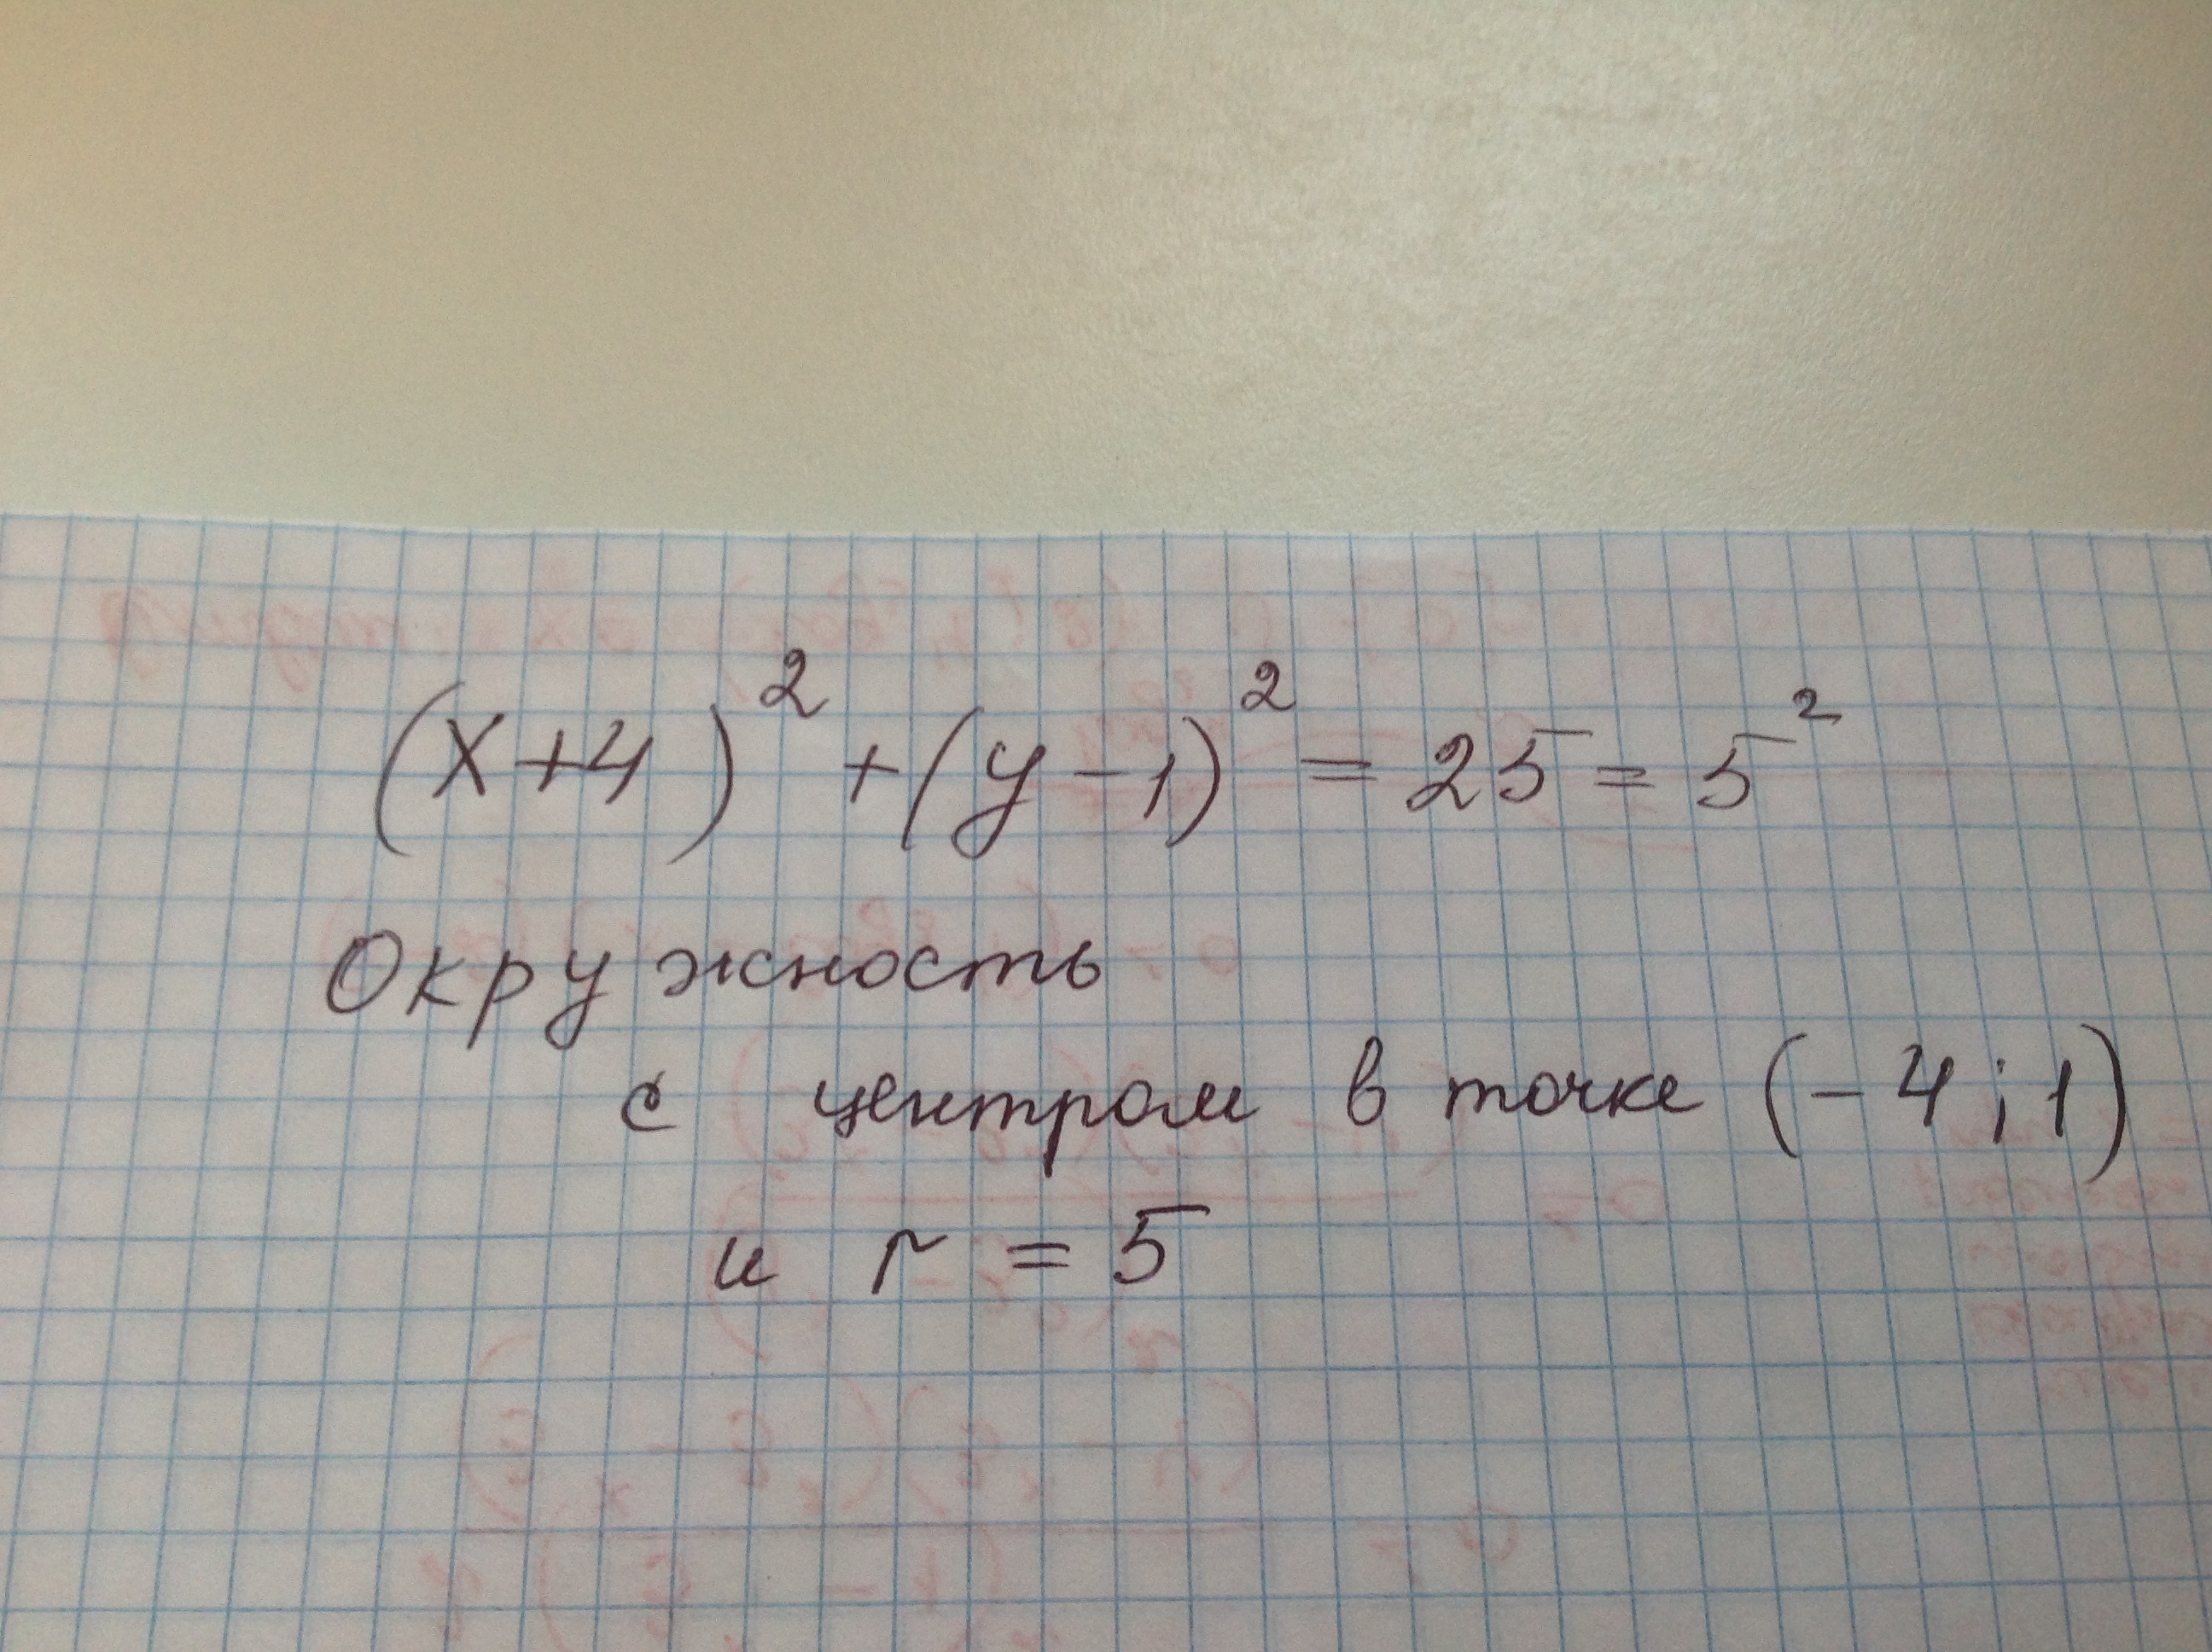 (x+4)² + (y-1)² = 25 = 5²
Окружность
с центром в точке (-4;1)
и r = 5